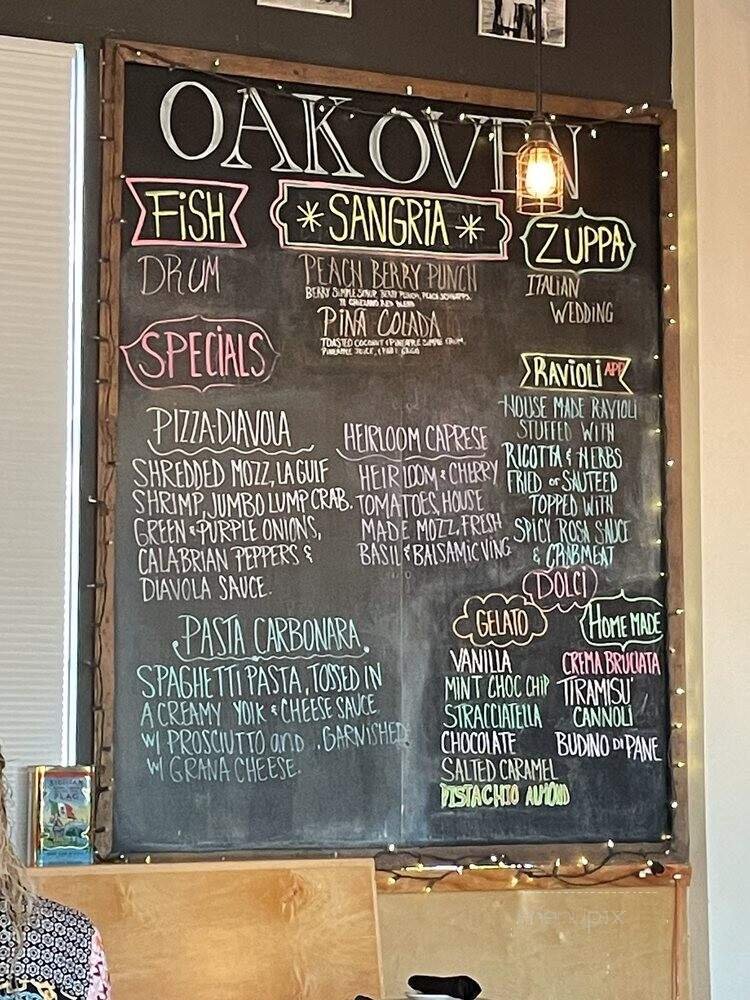 OAK OVEN
FiSH
DRUM
* SANGRiA *
PEACH BERRY PUNCH
BERRY SIMPLE SYRUP, BERRY PUNCH, PEACH SCHNAPPS,
RED BLEND
PINA COLADA
TOASTED COCONUT & PINEAPPLE SIMPLE
PINEAPPLE JUICE,
ZUPPA
ITALIAN
WEDDING
SPECiALS
PIZZA-DIAVOLA
SHREDDED MOZZ, LA GULF
SHRIMP, JUMBO LUMP CRAB,
GREEN & PURPLE ONIONS,
CALABRIAN PEPPERS &
DIAVOLA SAUCE.
HEIRLOOM CAPRESE
HEIRLOOM & CHERRY
TOMATOES, HOUSE
MADE MOZZ, FRESH
BASIL & BALSAMIC VING.
RAVIOLI APP
HOUSE MADE RAVIOLI
STUFFED WITH
RICOTTA & HERBS
FRIED or SAUTEED
TOPPED WITH
SPICY ROSA SAUCE
& CRABMEAT
PASTA CARBONARA
SPAGHETTI PASTA, TOSSED IN
A CREAMY YOLK & CHEESE SAUCE
W/ PROSCIUTTO and . GARNISHED
W/ GRANA CHEESE.
DOLCi
GELATO
VANILLA
MINT CHOC CHIP
STRACCIATELLA
CHOCOLATE
SALTED CARAMEL
PISTACHIO ALMOND
HOME MADE
CREMA BRUCIATA
TIRAMISU'
CANNOLI
BUDINO DI PANE
menupix